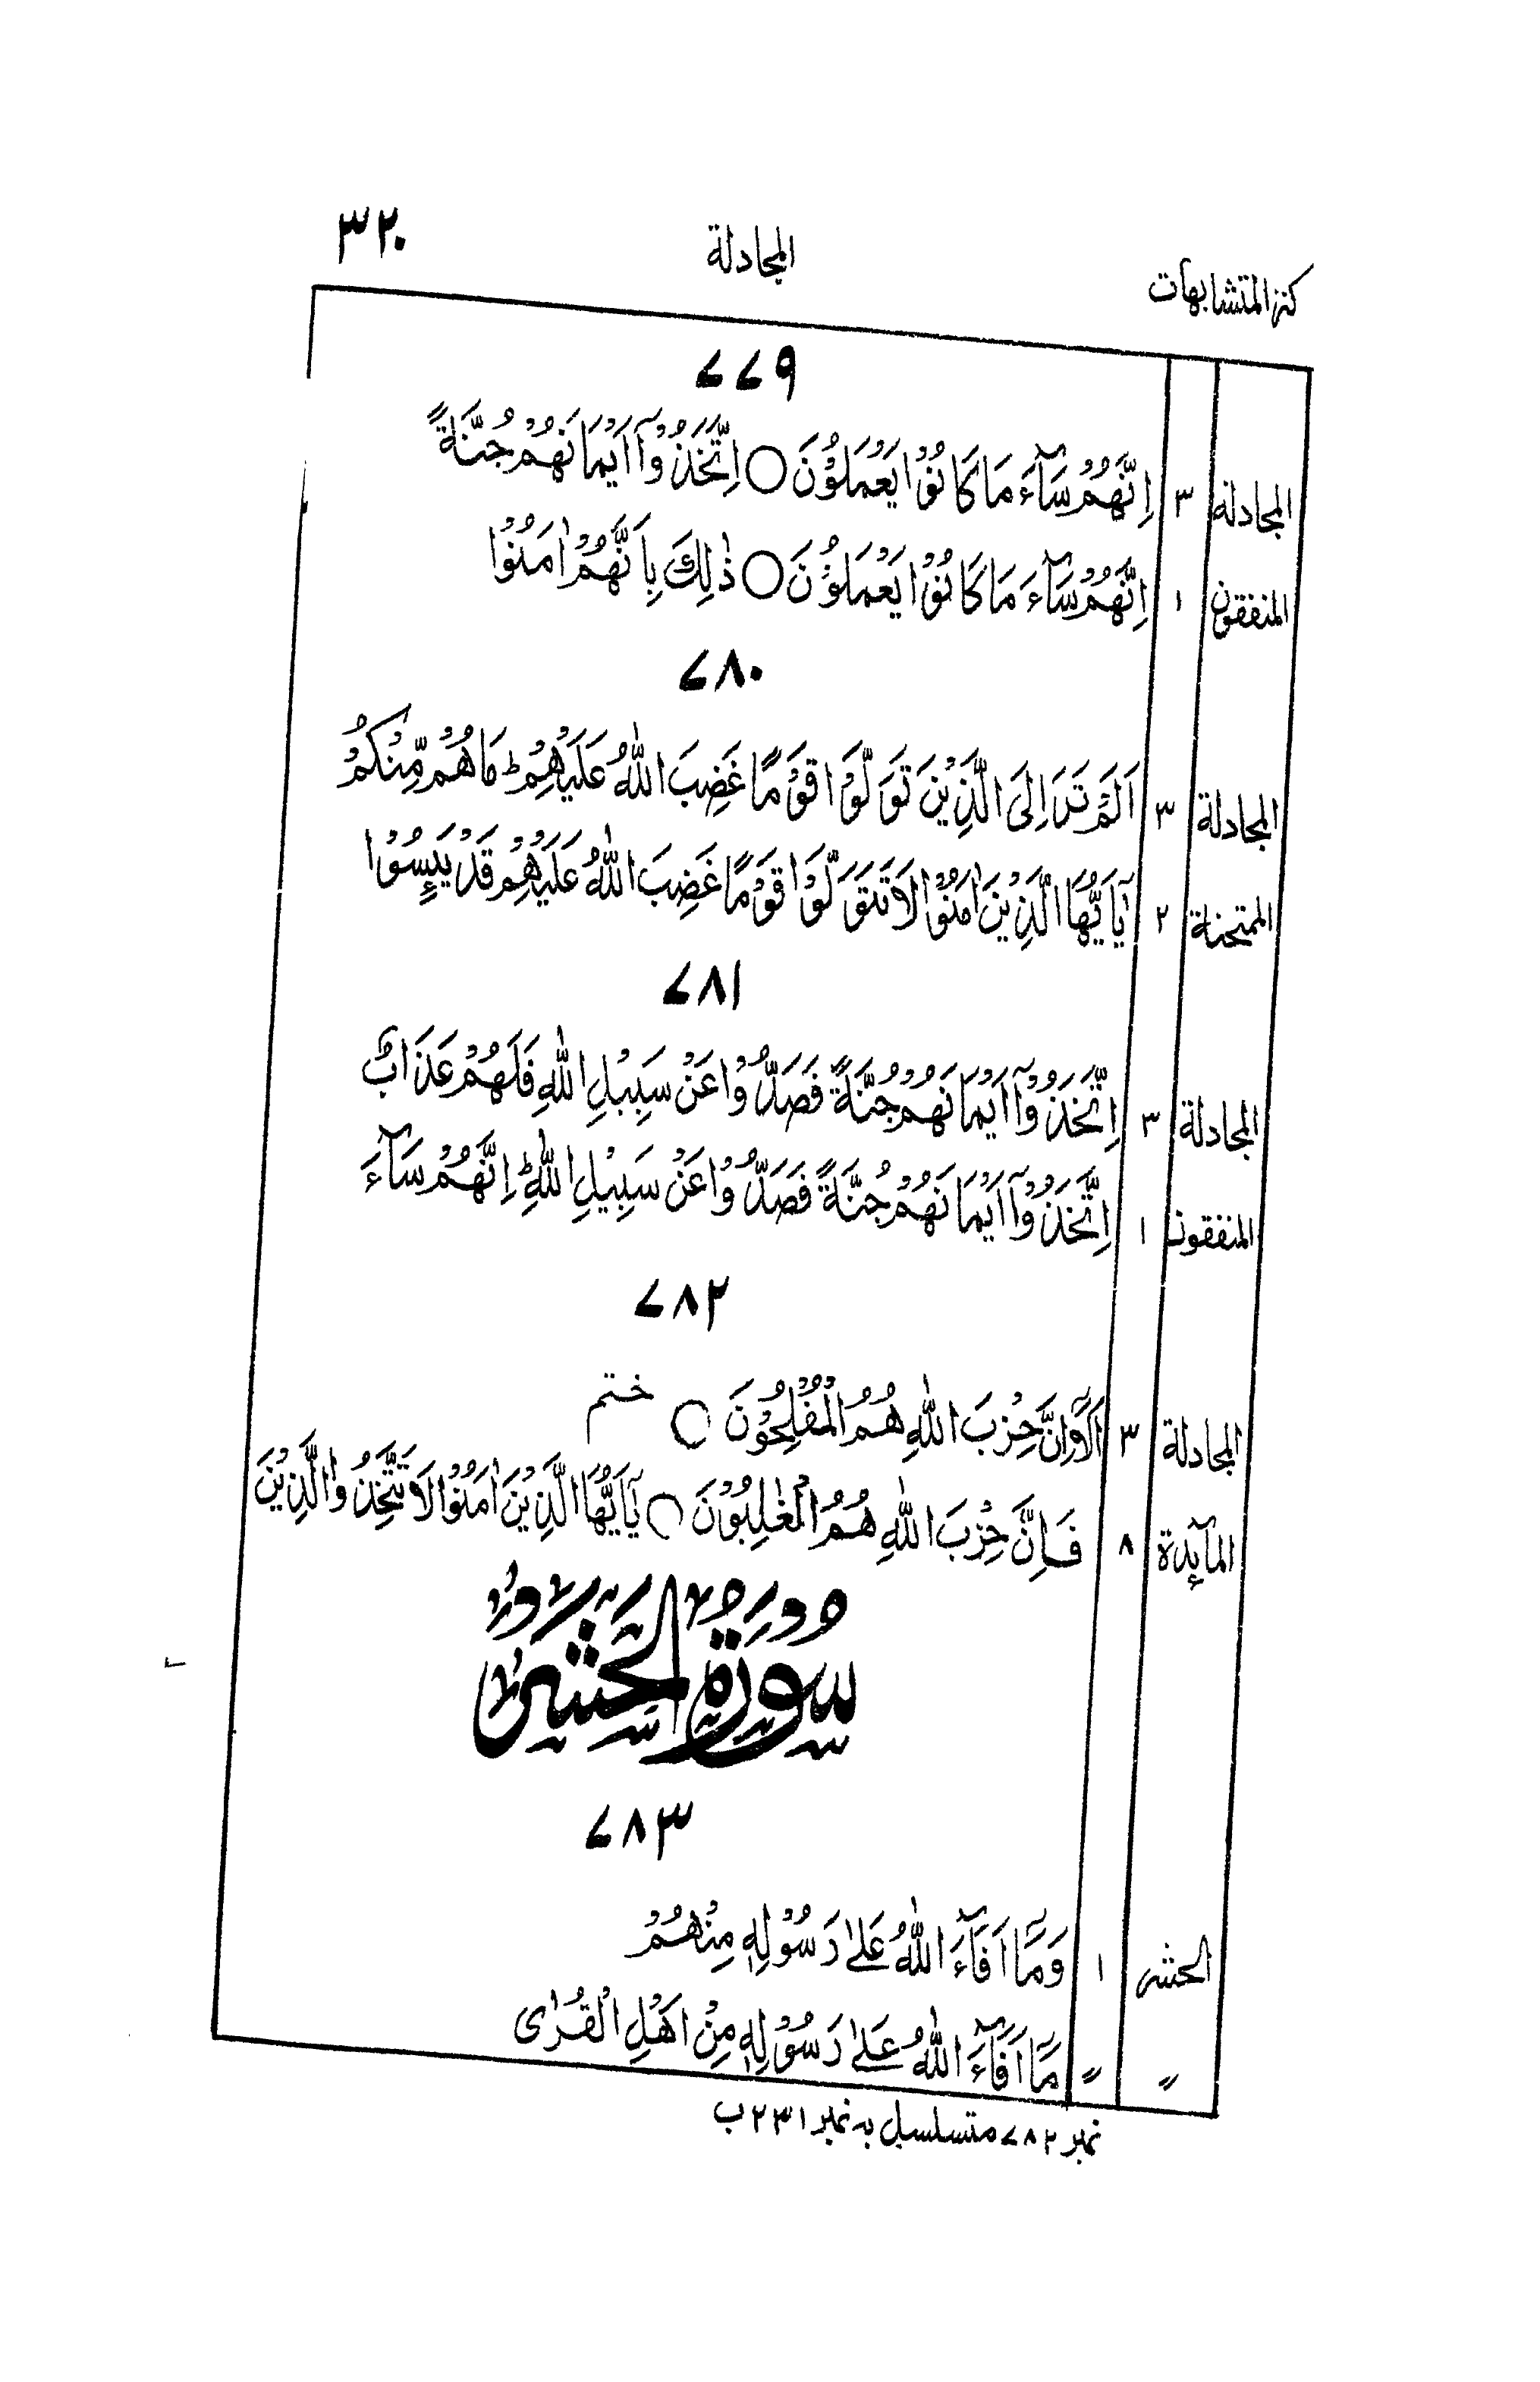 كنز المتشابهات المجادلة ٣٢٠
٧٧٩
المجادلة ٣ اِنَّهُمْ سَآءَ مَا كَانُوْا يَعْمَلُوْنَ ○ اِتَّخَذُوْٓا اَيْمَانَهُمْ جُنَّةً
المنفقون ١ اِنَّهُمْ سَآءَ مَا كَانُوْا يَعْمَلُوْنَ ○ ذٰلِكَ بِاَنَّهُمْ اٰمَنُوْا
٧٨٠
المجادلة ٣ اَلَمْ تَرَ اِلَى الَّذِيْنَ تَوَلَّوْا قَوْمًا غَضِبَ اللّٰهُ عَلَيْهِمْ ؕ مَا هُمْ مِّنْكُمْ
الممتحنة ٢ يٰٓاَيُّهَا الَّذِيْنَ اٰمَنُوْا لَا تَتَوَلَّوْا قَوْمًا غَضِبَ اللّٰهُ عَلَيْهِمْ قَدْ يَئِسُوْا
٧٨١
المجادلة ٣ اِتَّخَذُوْٓا اَيْمَانَهُمْ جُنَّةً فَصَدُّوْا عَنْ سَبِيْلِ اللّٰهِ فَلَهُمْ عَذَابٌ
المنفقون ١ اِتَّخَذُوْٓا اَيْمَانَهُمْ جُنَّةً فَصَدُّوْا عَنْ سَبِيْلِ اللّٰهِ ؕ اِنَّهُمْ سَآءَ
٧٨٢
المجادلة ٣ اَلَآ اِنَّ حِزْبَ اللّٰهِ هُمُ الْمُفْلِحُوْنَ ○ ختم
المآئدة ٨ فَاِنَّ حِزْبَ اللّٰهِ هُمُ الْغٰلِبُوْنَ ○ يٰٓاَيُّهَا الَّذِيْنَ اٰمَنُوْا لَا تَتَّخِذُوا الَّذِيْنَ
سُوْرَةُ الْحَشْرِ
٧٨٣
الحشر ١ وَمَآ اَفَآءَ اللّٰهُ عَلٰى رَسُوْلِهٖ مِنْهُمْ
〃 〃 مَآ اَفَآءَ اللّٰهُ عَلٰى رَسُوْلِهٖ مِنْ اَهْلِ الْقُرٰى
نمبر ٧٨٢ متسلسل به نمبر ٢٣١ ب